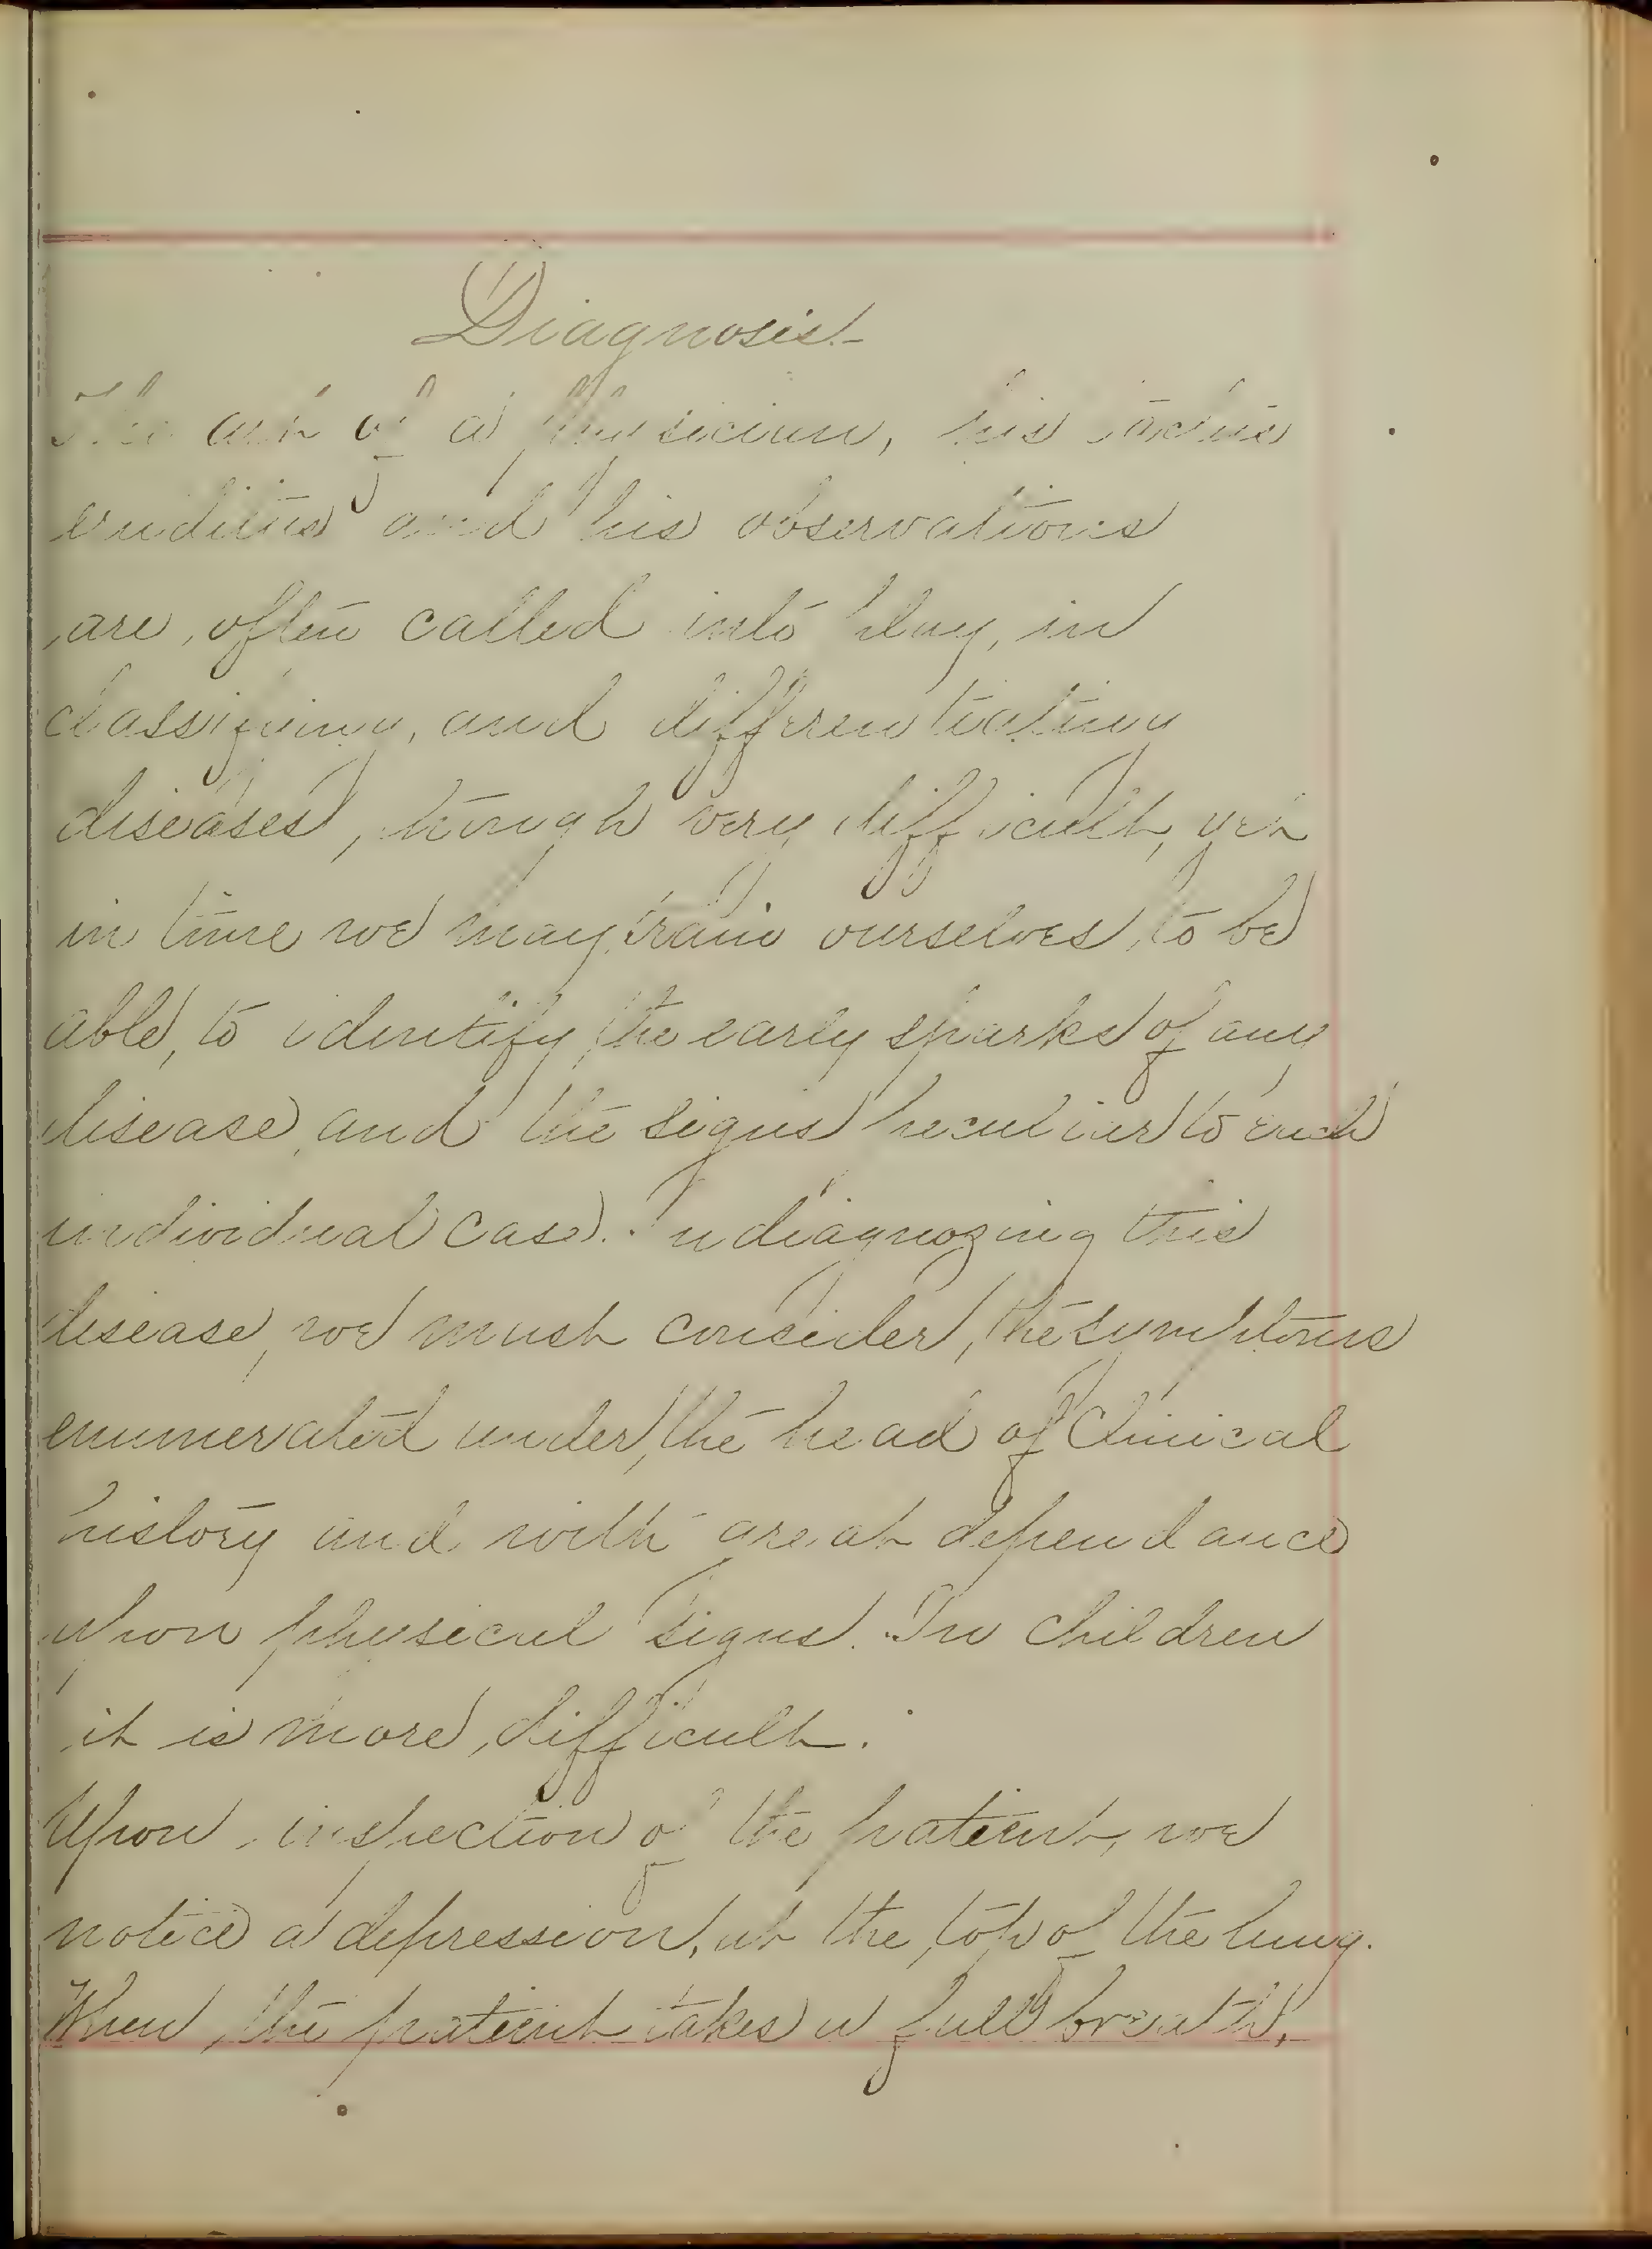 Diagnosis.
The art of a physician, his tactus
eruditus and his observations
are, often called into play, in
classifying, and differentiating
diseases, though very difficult, yet
in time we may train ourselves, to be
able, to identify the early sparks of any
disease, and the signs peculiar to each
individual case. In diagnozing this
disease, we must consider, the symptoms
enumerated under, the head of Clinical
history and with great dependance
upon physical signs. In children
it is more, difficult.
Upon inspection of the patient, we
notice a depression, at the top of the lung.
When, the patient takes a full breath,